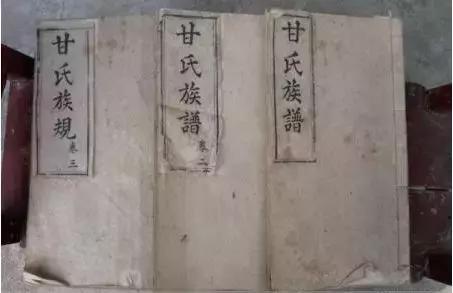 甘氏族譜
甘氏族譜
卷二
甘氏族規
卷三